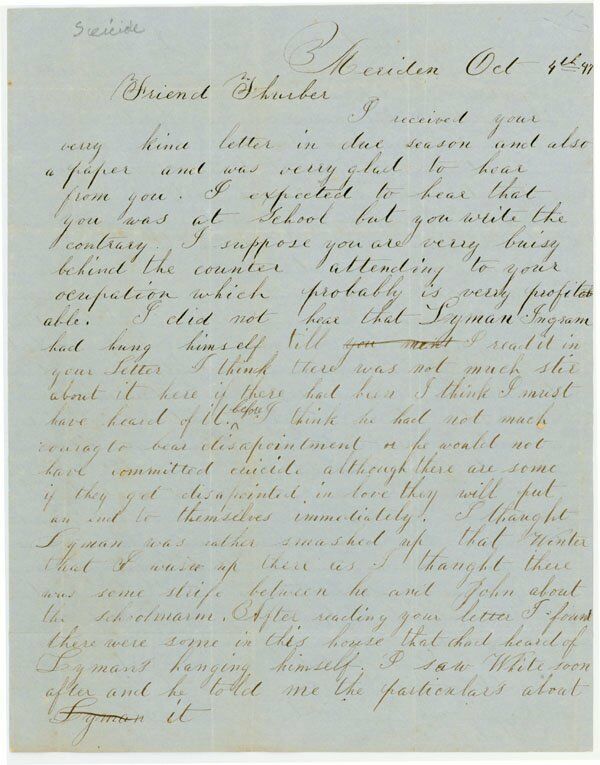 Suicide
Meriden Oct 4th
Friend Thurber
I received your
verry kind letter in due season and also
a paper and was verry glad to hear
from you. I expected to hear that
you was at School but you write the
contrary. I suppose you are verry buisy
behind the counter attending to your
ocupation which probably is verry profitab
able. I did not hear that Lyman Ingram
had hung himself till you ment I read it in
your Letter I think there was not much stir
about it here if there had been I think I must
have heard of it before I think he had not much
courag to bear disapointment or he would not
have committed suicide although there are some
if they get disapointed in love they will put
an end to themselves immediately. I thought
Lyman was rather smashed up that Winter
that I was up there as I thought there
was some strife between he and John about
the schoolmarm. After reading your letter I found
there were some in this house that had heard of
Lymans hanging himself. I saw White soon
after and he told me the particulars about
Lyman it